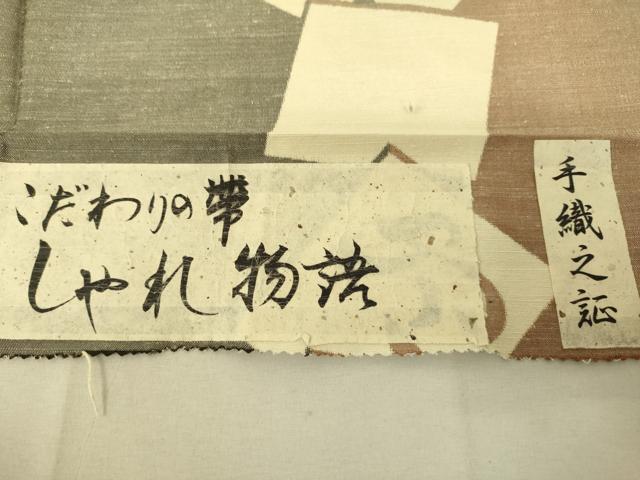 こだわりの帶
しゃれ物語
手織之証